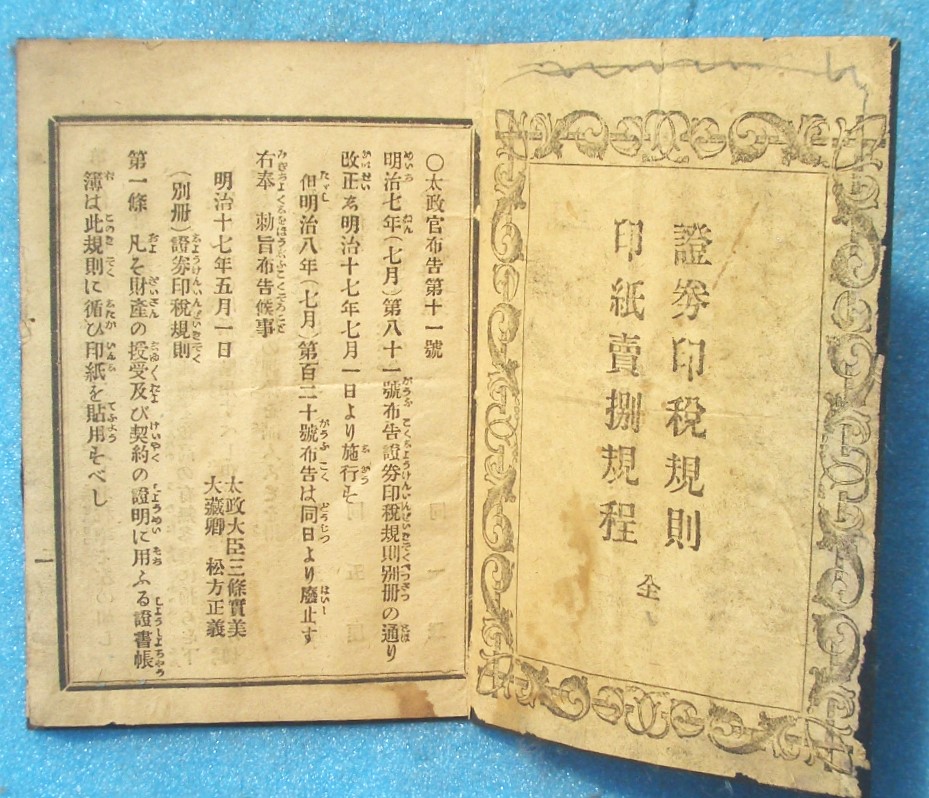 證券印税規則
印紙賣捌規程
全
〇太政官布告第十一號
明治七年(七月)第八十一號布告證券印税規則別冊の通り
改正し明治十七年七月一日より施行す
但明治八年(七月)第百二十號布告は同日より廢止す
右奉 勅旨布告候事
明治十七年五月一日
太政大臣三條實美
大藏卿 松方正義
(別冊)證券印税規則
第一條 凡そ財產の授受及び契約の證明に用ふる證書帳
簿は此規則に循ひ印紙を貼用すべし
一